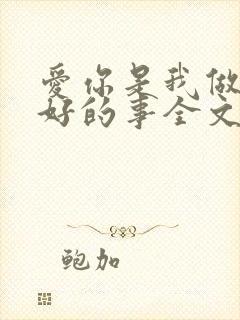 爱你是我做
好的事全文
鲍加